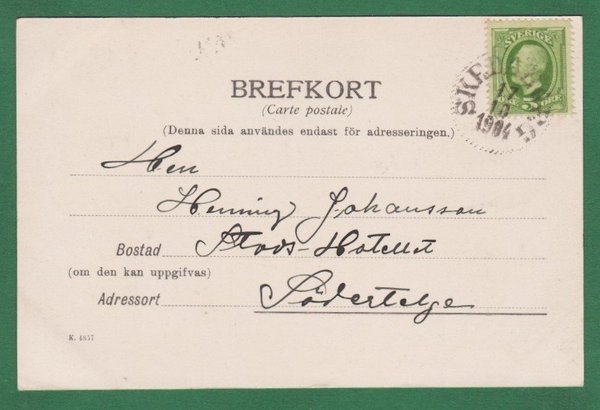 SVERIGE
5 ÖRE
SKED
17
10
1904
BREFKORT
(Carte postale)
(Denna sida användes endast för adresseringen.)
Herr
Henning Johansson
Bostad Stads-Hotellet
(om den kan uppgifvas)
Adressort Södertelge
K. 4857